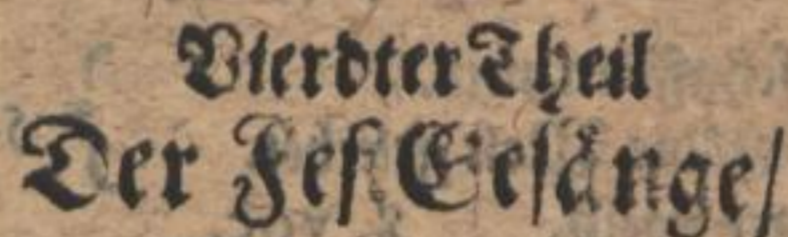 Vierdter Theil
Der Fest Gesänge/